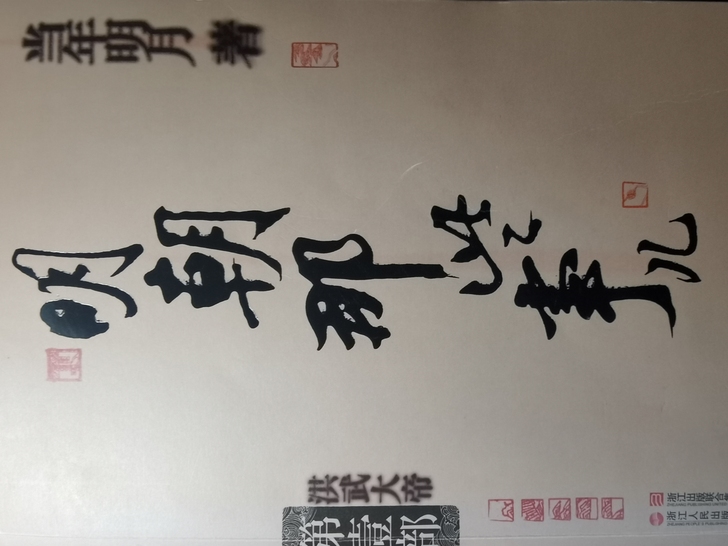 当年明月 著
明朝那些事儿
洪武大帝
第壹部
浙江出版联合集
浙江人民出版